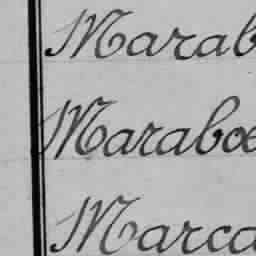 Marab
Maraboe
Marca